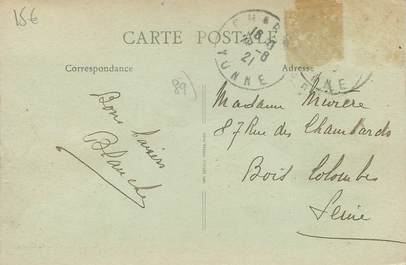 15€
CARTE POSTALE
Correspondance
Adresse
YONNE
18
21
89
Bons baisers
Blanche
Madame
87 Rue des Chambards
Bois Colombes
Seine